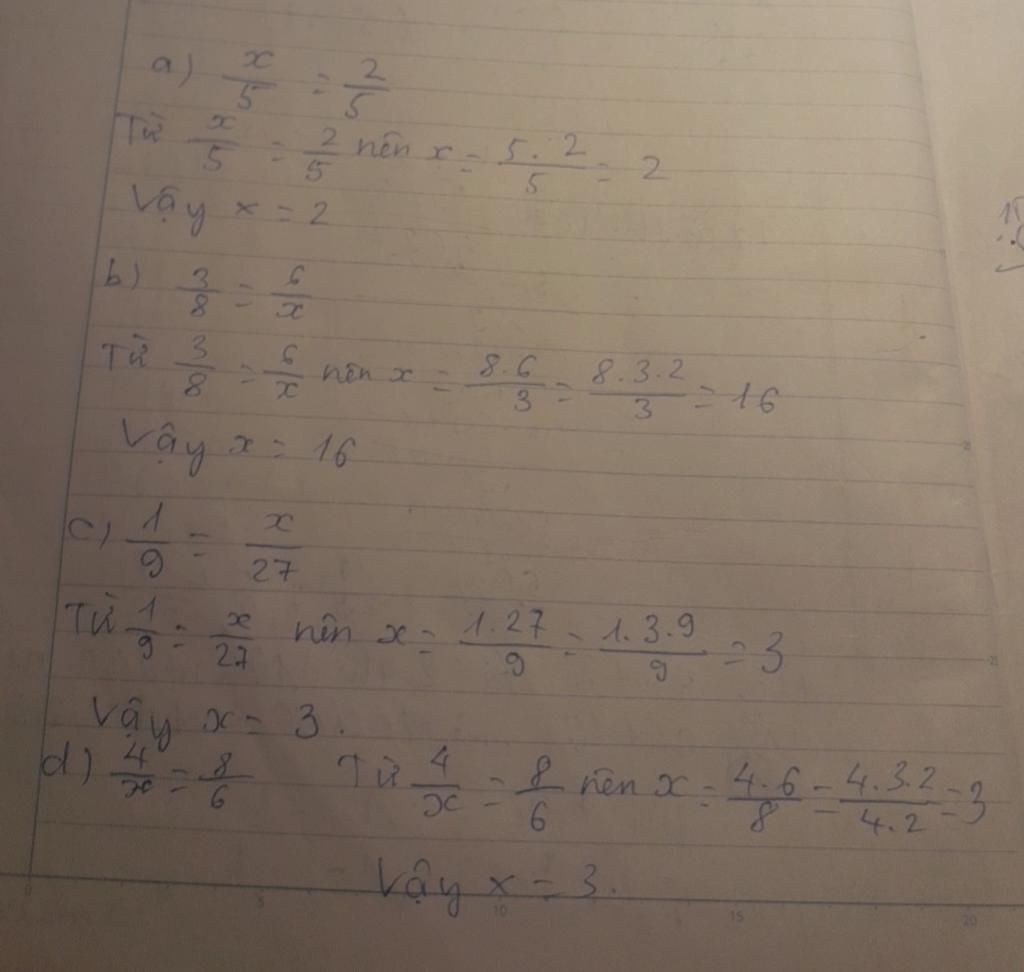 a) x/5 = 2/5
Từ x/5 = 2/5 nên x = 5.2/5 = 2
Vậy x = 2
b) 3/8 = 6/x
Từ 3/8 = 6/x nên x = 8.6/3 = 8.3.2/3 = 16
Vậy x = 16
c) 1/9 = x/27
Từ 1/9 = x/27 nên x = 1.27/9 = 1.3.9/9 = 3
Vậy x = 3.
d) 4/x = 8/6 Từ 4/x = 8/6 nên x = 4.6/8 = 4.3.2/4.2 = 3
Vậy x = 3.
0 5 10 15 20